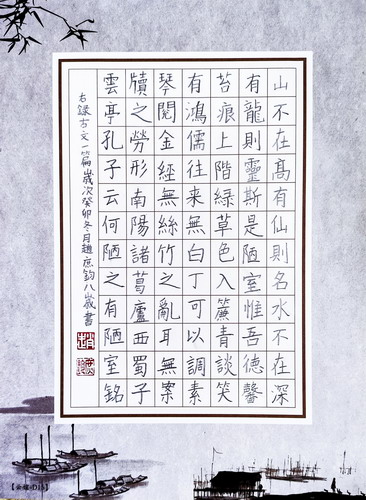 山不在髙有仙則名水不在深
有龍則靈斯是陋室惟吾德馨
苔痕上階緑草色入簾青談笑
有鴻儒往来無白丁可以調素
琴閱金經無絲竹之亂耳無案
牘之勞形南陽諸葛廬西蜀子
雲亭孔子云何陋之有陋室銘
右録古文一篇歲次癸卯冬月趙庶鈞八歲書
趙